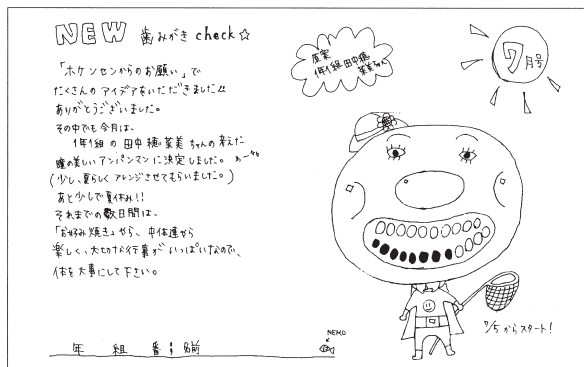 NEW 歯みがき check☆
「ホケンセンからのお願い」で
たくさんの アイデアをいただきました!!
ありがとうございました。
その中でも今月は、
1年1組 の 田中 穂菜美 ちゃんの 考えた
瞳の美しい アンパンマン に決定しました。
(少し、夏らしく アレンジさせてもらいました。)
あと少しで夏休み!!
それまでの数日間は、
「お好み焼き」やら、中体連やら
楽しく、大切な行事が いっぱいなので、
体を大事にして下さい。
年 組 番 名前
NEMO
原案
1年1組 田中穂
菜美ちゃん
7月号
7/5からスタート!